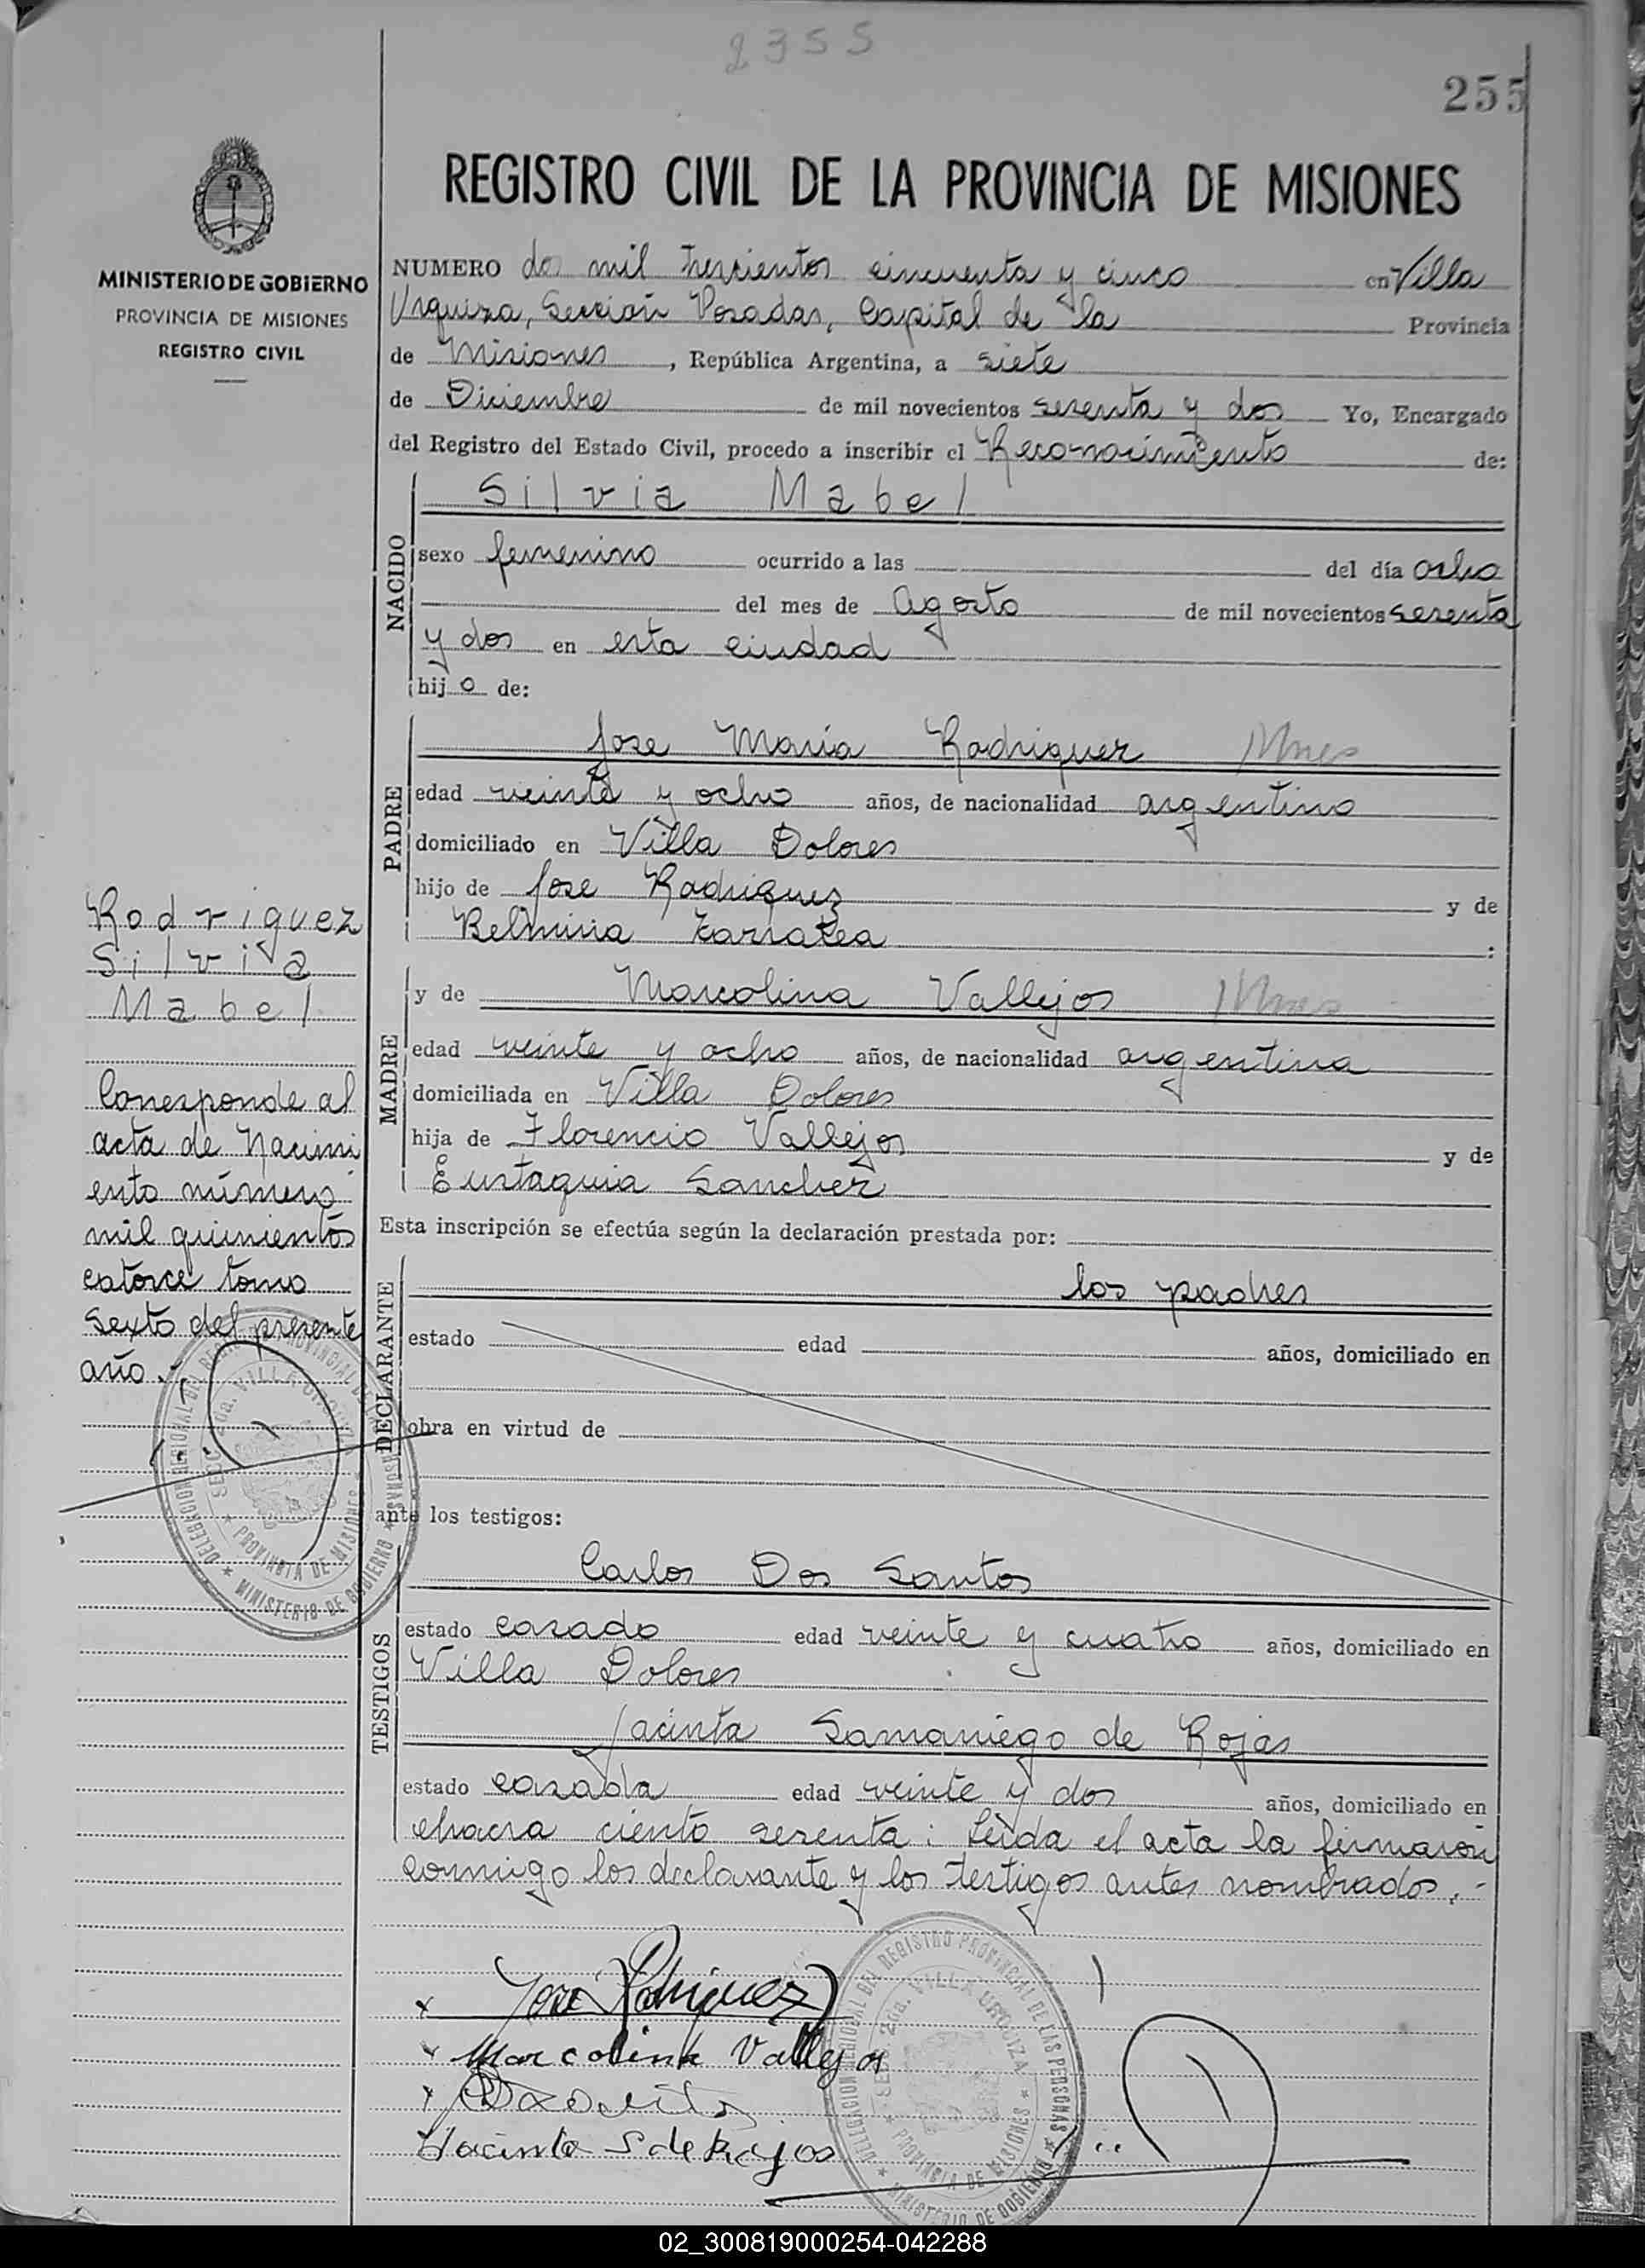 2355
255
REGISTRO CIVIL DE LA PROVINCIA DE MISIONES
MINISTERIO DE GOBIERNO
PROVINCIA DE MISIONES
REGISTRO CIVIL
NUMERO dos mil trescientos cincuenta y cinco en Villa
Urquiza, Sección Posadas, Capital de la Provincia
de Misiones, República Argentina, a siete
de Diciembre de mil novecientos sesenta y dos Yo, Encargado
del Registro del Estado Civil, procedo a inscribir el Reconocimiento de:
NACIDO
Silvia Mabel
sexo femenino ocurrido a las del día ocho
del mes de Agosto de mil novecientos sesenta
y dos en esta ciudad
hijo de:
PADRE
Jose Maria Rodriguez
edad veinte y ocho años, de nacionalidad argentino
domiciliado en Villa Dolores
hijo de Jose Rodriguez y de
Belmiria Zarratea :
MADRE
y de Marcolina Vallejos
edad veinte y ocho años, de nacionalidad argentina
domiciliada en Villa Dolores
hija de Florencio Vallejos y de
Eustaquia Sanchez
Rodriguez
Silvia
Mabel
Corresponde al
acta de Nacimi
ento número
mil quinientos
catorce tomo
Sexto del presente
año.-
Esta inscripción se efectúa según la declaración prestada por:
DECLARANTE
los padres
estado edad años, domiciliado en
obra en virtud de
ante los testigos:
TESTIGOS
Carlos Dos Santos
estado casado edad veinte y cuatro años, domiciliado en
Villa Dolores
Jacinta Samaniego de Rojas
estado casada edad veinte y dos años, domiciliado en
chacra ciento sesenta: Leída el acta la firmaron
conmigo los declarante y los testigos antes nombrados.-
DELEGACION REGIONAL DEL REGISTRO PROVINCIAL DE LAS PERSONAS
SECC. 2da. VILLA URQUIZA
PROVINCIA DE MISIONES
MINISTERIO DE GOBIERNO
x Jose Rodriguez
x Marcolina Vallejos
x
Jacinta S de Rojos
DELEGACION REGIONAL DEL REGISTRO PROVINCIAL DE LAS PERSONAS
SECC. 2da. VILLA URQUIZA
PROVINCIA DE MISIONES
MINISTERIO DE GOBIERNO
02_300819000254-042288